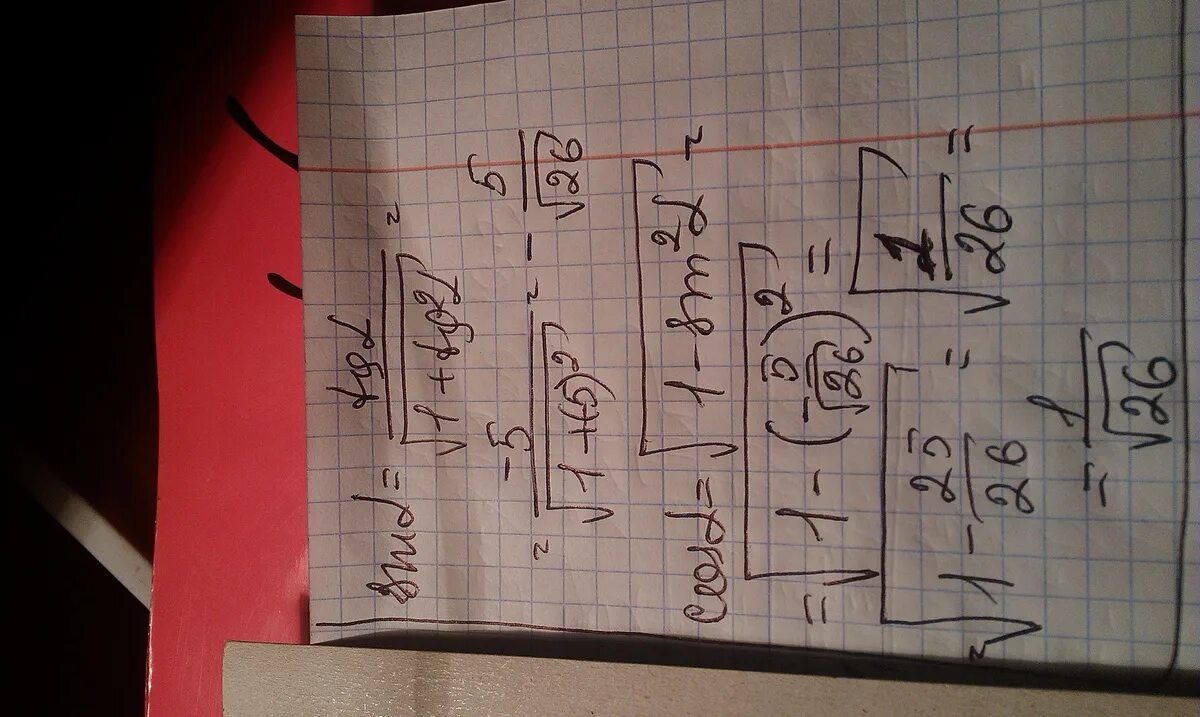 sin α = tg α / √(1 + tg² α) =
= -5 / √(1 + (5)²) = - 5 / √26
cos α = √(1 - sin² α) =
= √(1 - (-5 / √26)²) =
= √(1 - 25 / 26) = √(1 / 26) =
= 1 / √26